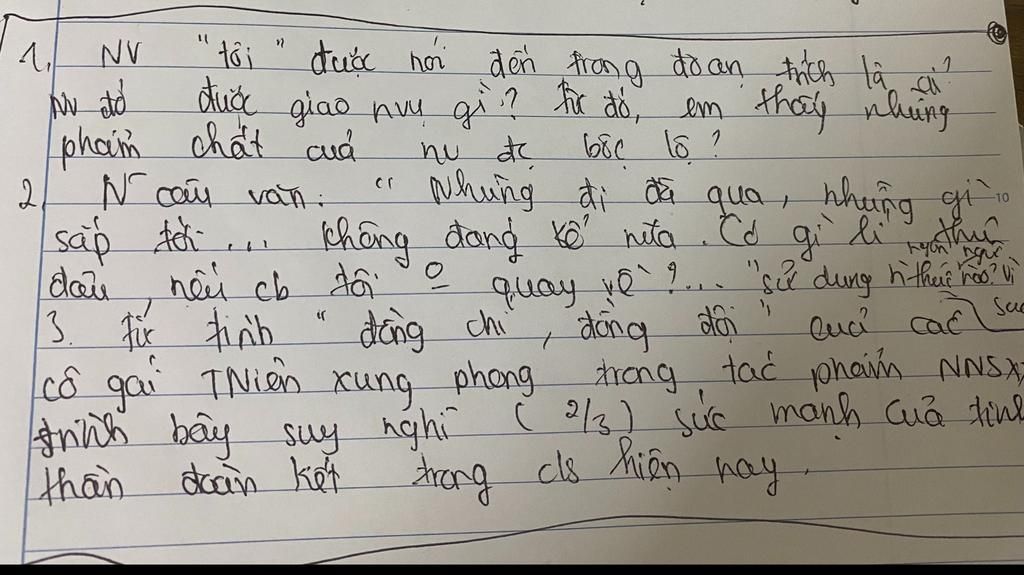 1. NV "tôi" được nói đến trong đoạn trích là ai?
NV đó được giao nvụ gì? Từ đó, em thấy những
phẩm chất của nv đc bộc lộ?
2. N~ câu văn: "Những đi đã qua, những gì
sắp tới... không đáng kể nữa. Có gì lí thú
đâu, nếu cb tôi O quay về?..." sử dụng hthức ngôn ngữ nào? Vì sao
3. Từ tình "đồng chí, đồng đội" của các
cô gái TNiên xung phong trong tác phẩm NNSX,
trình bày suy nghĩ (2/3) sức mạnh của tinh
thần đoàn kết trong cls hiện nay.